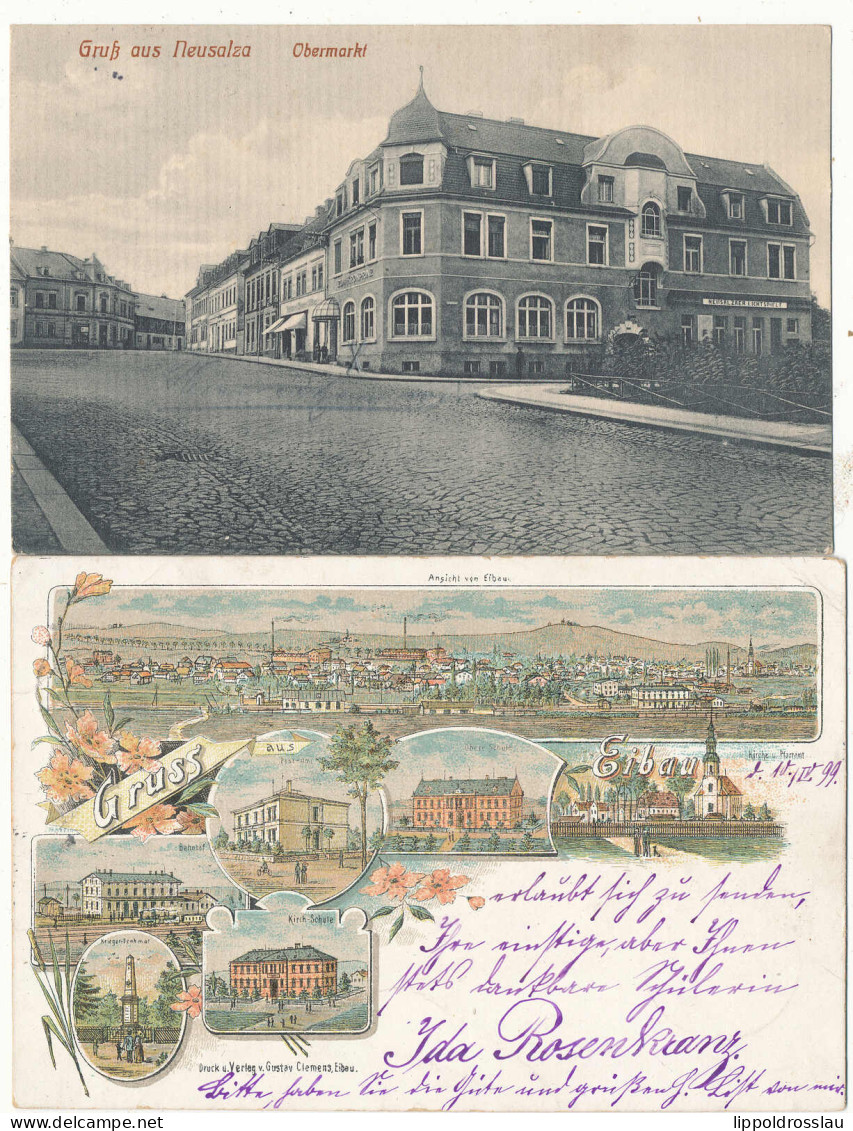 Gruß aus Neusalza Obermarkt
NEUSALZAER LICHTSPIELE
Ansicht von Eibau.
Gruss aus Eibau
Kirche u. Pfarramt
d. 10./IV. 99.
Postamt
Ober-Schule
Bahnhof
Kirch-Schule
Kriegerdenkmal
erlaubt sich zu senden,
Ihre einstige, aber Ihnen
stets dankbare Schülerin
Ida Rosenkranz.
Druck u. Verlag v. Gustav Clemens, Eibau.
Bitte, haben Sie die Güte und grüßen H. List von mir.
lippoldrosslau